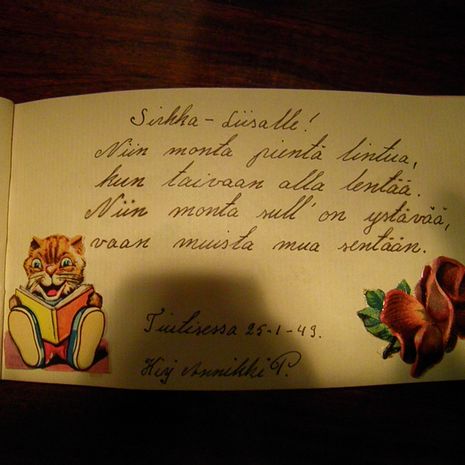 Sirkka-Liisalle!
Niin monta pientä lintua,
kun taivaan alla lentää.
Niin monta sull' on ystävää,
vaan muista mua sentään.
25-1-49.
Kirj Annikki P.